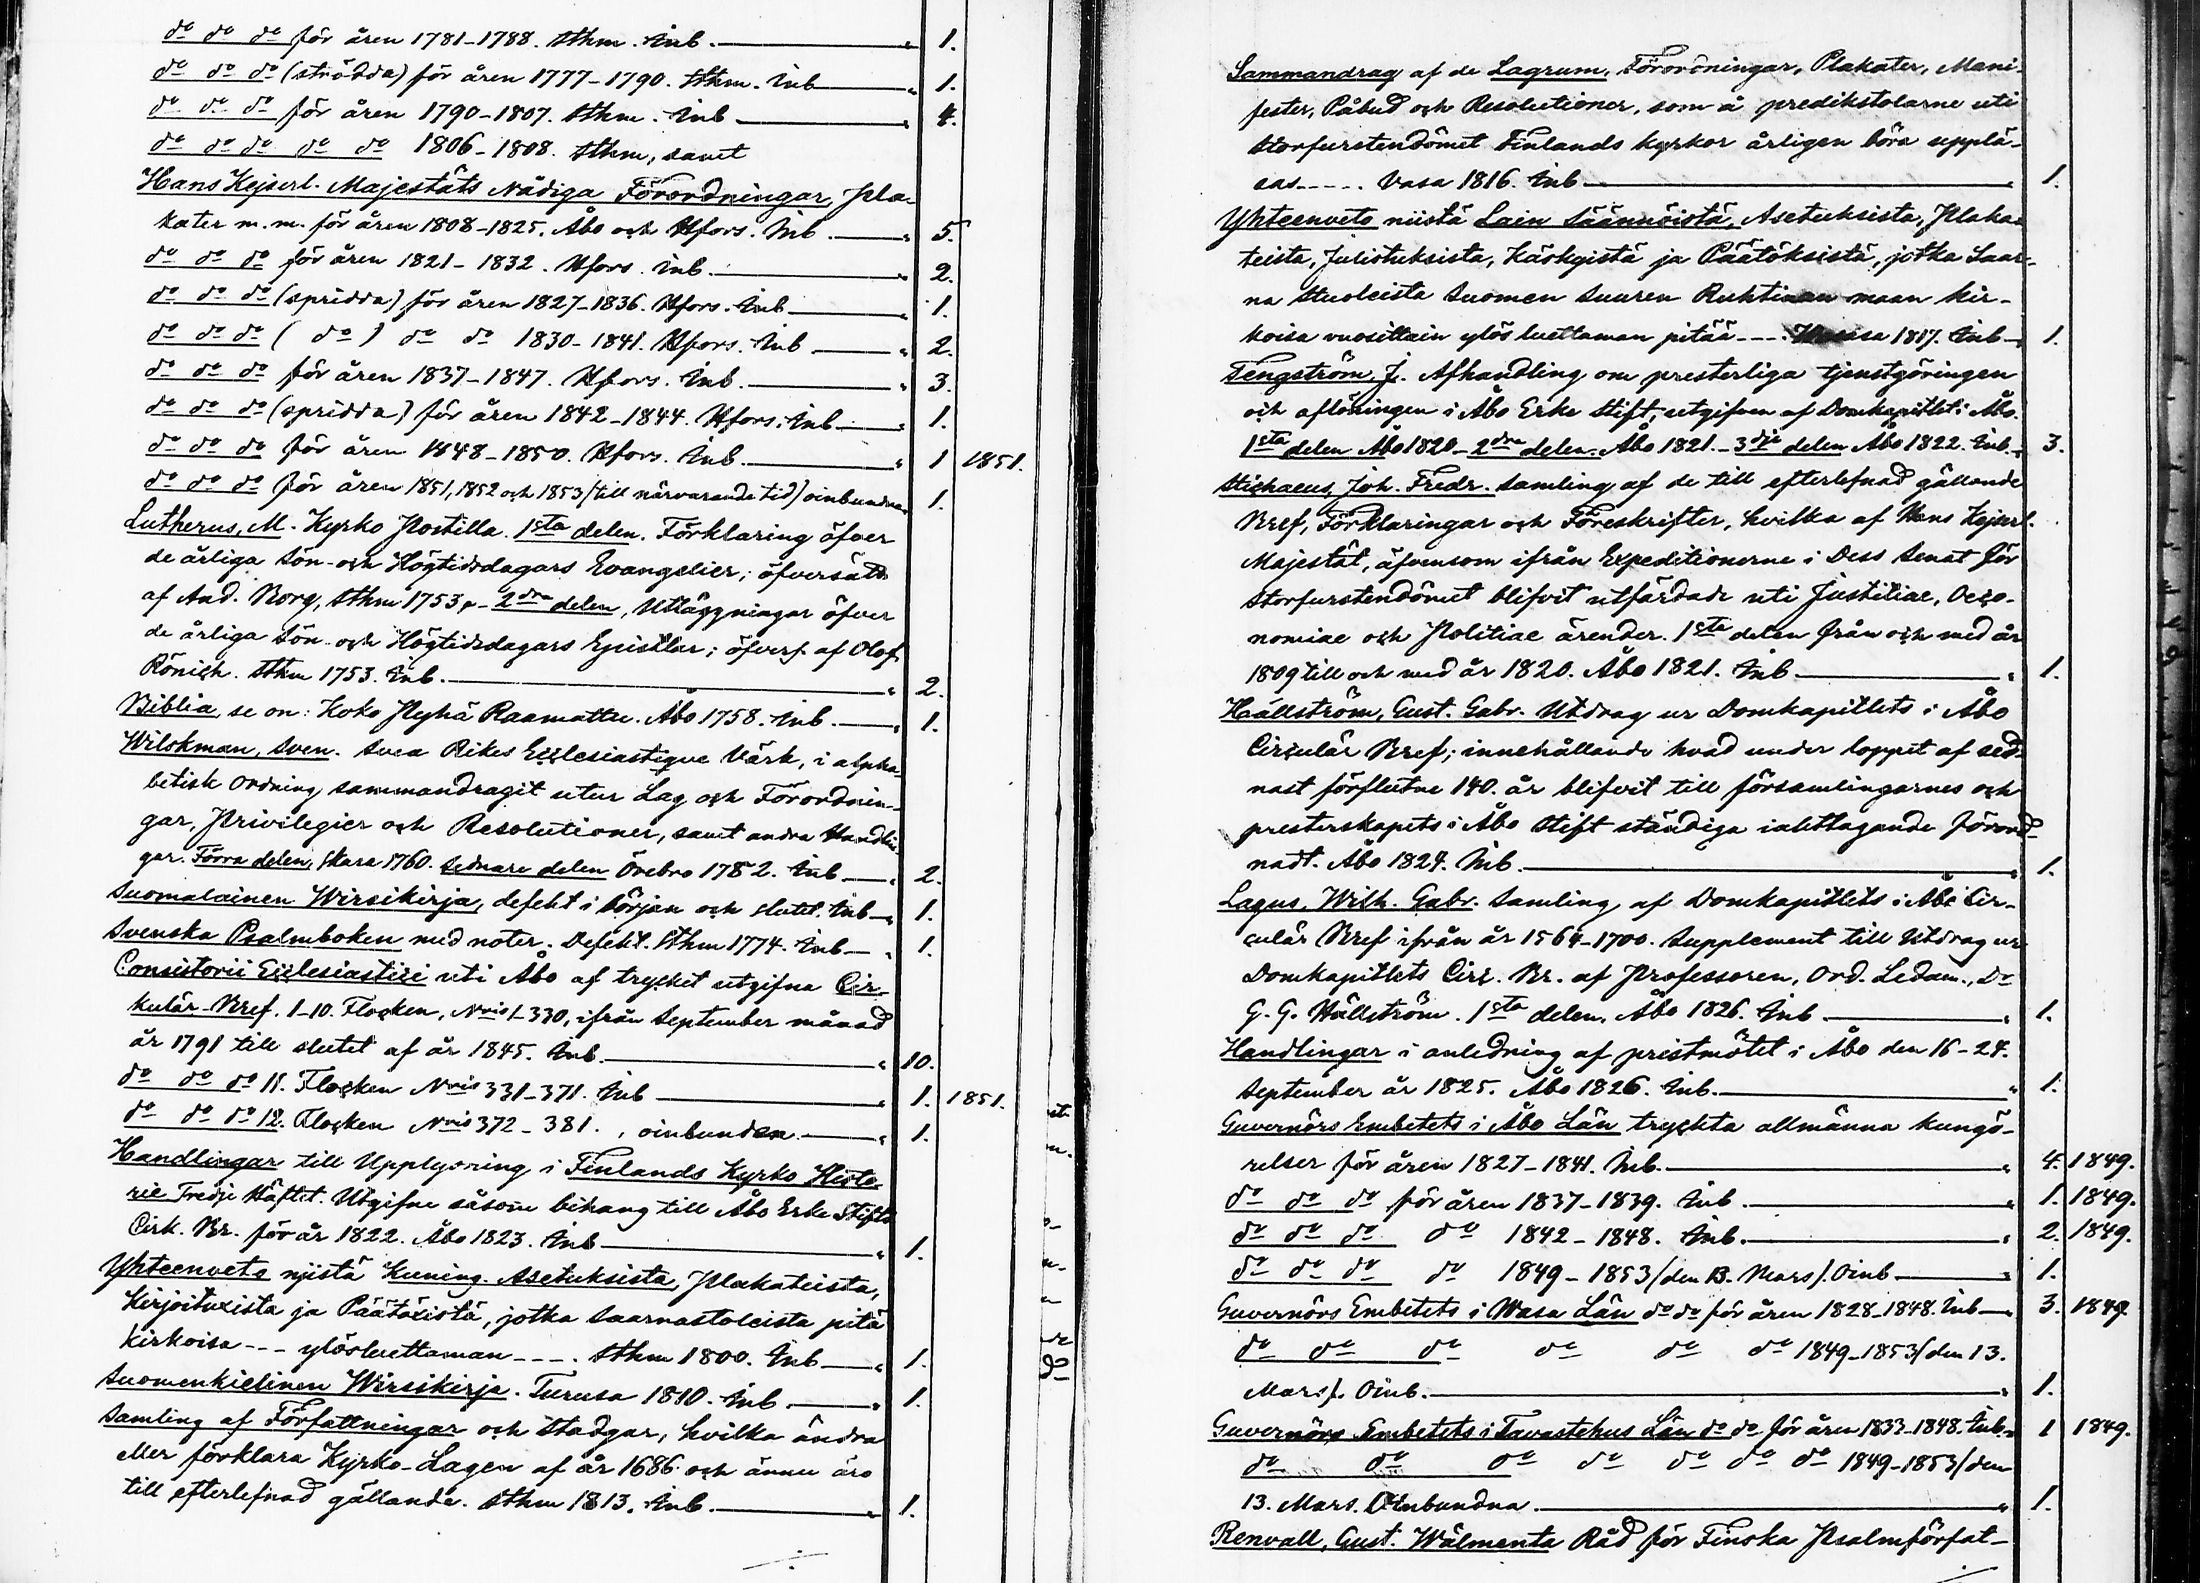 do do do för åren 1781-1788. Sthm. Inb. " 1.
do do do (strödda) för åren 1777-1790. Sthm. Inb " 1.
do do do för åren 1790-1807. Sthm. Inb " 4.
do do do do do 1806-1808. Sthm, samt
Hans Kejserl. Majestäts Nådiga Förordningar, Pla-
kater m.m. för åren 1808-1825. Åbo och Hfors. Inb. " 5.
do do do för åren 1821-1832. Hfors. inb. " 2.
do do do (spridda) för åren 1827-1836. Hfors. Inb " 1.
do do do ( do ) do do 1830-1841. Hfors. Inb " 2.
do do do för åren 1837-1847. Hfors. Inb. " 3.
do do do (spridda) för åren 1842-1844. Hfors. Inb " 1.
do do do för åren 1848-1850. Hfors. Inb. " 1 1851.
do do do för åren 1851, 1852 och 1853 (till närvarande tid) oinbundna 1.
Lutherus, M. Kyrko Postilla. 1sta delen. Förklaring öfver
de årliga Sön- och Högtidsdagars Evangelier; öfversätt
af And. Borg, Sthm 1753. - 2dra delen, Utläggningar öfver
de årliga Sön- och Högtidsdagars Epistlar; öfvers. af Olof
Rönigh. Sthm 1753. Inb. " 2.
Biblia, se on: Koko Pyhä Raamattu. Åbo 1758. Inb. " 1.
Wilskman, Sven. Svea Rikes Ecclesiastique Värk, i alpha-
betisk Ordning sammandragit utur Lag och Förordnin-
gar, Privilegier och Resolutioner, samt andra Handlin-
gar. Förra delen, Skara 1760. Sednare delen Örebro 1782. Inb " 2.
Suomalainen Wirsikirja, defekt i början och slutet. Inb " 1.
Svenska Psalmboken med noter. Defekt. Sthm 1774. Inb " 1.
Consistorii Ecclesiastici uti Åbo af trycket utgifna Cir-
kulär-Bref. 1-10. Flocken, Nris 1-330, ifrån September månad
år 1791 till slutet af år 1845. Inb. " 10.
do do do 11. Flocken Nris 331-371. Inb " 1. 1851.
do do do 12. Flocken Nris 372-381. , oinbunden " 1.
Handlingar till Upplysning i Finlands Kyrko Histo-
rie Tredje Häftet. Utgifne såsom bihang till Åbo Erke Stifts
Cirk. Br. för år 1822. Åbo 1823. Inb " 1.
Yhteenveto niistä Kuning. Asetuksista, Plakateista,
Kirjoituxista ja Päätöxistä, jotka Saarnastoleista pitä
kirkoisa --- ylösluettaman ----. Sthm 1800. Inb " 1.
Suomenkielinen Wirsikirja. Turusa 1810. Inb. " 1.
Samling af Författningar och Stadgar, hvilka ändra
eller förklara Kyrko-Lagen af år 1686. och ännu äro
till efterlefnad gällande. Sthm 1813. Inb. " 1.
Sammandrag af de Lagrum, Förordningar, Plakater, Mani-
fester, Påbud och Resolutioner, som å predikstolarne uti
Storfurstendömet Finlands kyrkor årligen böra upplä-
sas----. Vasa 1816. Inb " 1.
Yhteenveto niistä Lain Säännöistä, Asetuksista, Plaka-
teista, Julistuksista, Käskyistä ja Päätöksistä, jotka Saar-
na Stuoleista Suomen Suuren Ruhtinan maan kir-
koisa vuosittain ylös luettaman pitää ---. Wasasa 1817. Inb " 1.
Tengström, J. Afhandling om presterliga tjenstgöringen
och aflöningen i Åbo Erke Stift, utgifven af Domkapitlet i Åbo.
1sta delen Åbo 1820 - 2dra delen. Åbo 1821. - 3dje delen Åbo 1822. Inb. " 3.
Stichaeus, Joh. Fredr. Samling af de till efterlefnad gällande
Bref, Förklaringar och Föreskrifter, hvilka af Hans Kejserl.
Majestät, äfvensom ifrån Expeditionerne i Dess Senat för
Storfurstendömet blifvit utfärdade uti Justitiae, Oeco-
nomiae och Politiae ärender. 1sta delen från och med år
1809 till och med år 1820. Åbo 1821. Inb " 1.
Haällström, Gust. Gabr. Utdrag ur Domkapitlets i Åbo
Circulär Bref; innehållande hvad under loppet af sed-
nast förflutne 140. år blifvit till församlingarnes och
presterskapets i Åbo Stift ständiga iakttagande förord-
nadt. Åbo 1824. Inb. " 1.
Lagus, Wilh. Gabr. Samling af Domkapitlets i Åbo Cir-
culär Bref ifrån år 1564-1700. Supplement till Utdrag ur
Domkapitlets Circ. Br. af Professoren, Ord. Ledam., Do
G. G. Hällström. 1sta delen. Åbo 1826. Inb " 1.
Handlingar i anledning af prestmötet i Åbo den 16-24.
September år 1825. Åbo 1826. Inb. " 1.
Guvernörs Embetets i Åbo Län tryckta allmänna kungö-
relser för åren 1827-1841. Inb. " 4. 1849.
do do do för åren 1837-1839. Inb. " 1. 1849.
do do do do 1842-1848. Inb. " 2. 1849.
do do do do 1849-1853 (den 13. Mars). Oinb " 1.
Guvernörs Embetets i Wasa Län do do för åren 1828-1848. Inb " 3. 1849.
do do do do do do 1849-1853 (den 13.
Mars). Oinb. " 1.
Guvernörs Embetets i Tavastehus Län do do för åren 1833-1848. Inb. " 1 1849.
do do do do do do do 1849-1853 (den
13. Mars. Oinbundna. " 1.
Renvall, Gust. Wälmenta Råd för Finska Psalmförfat-